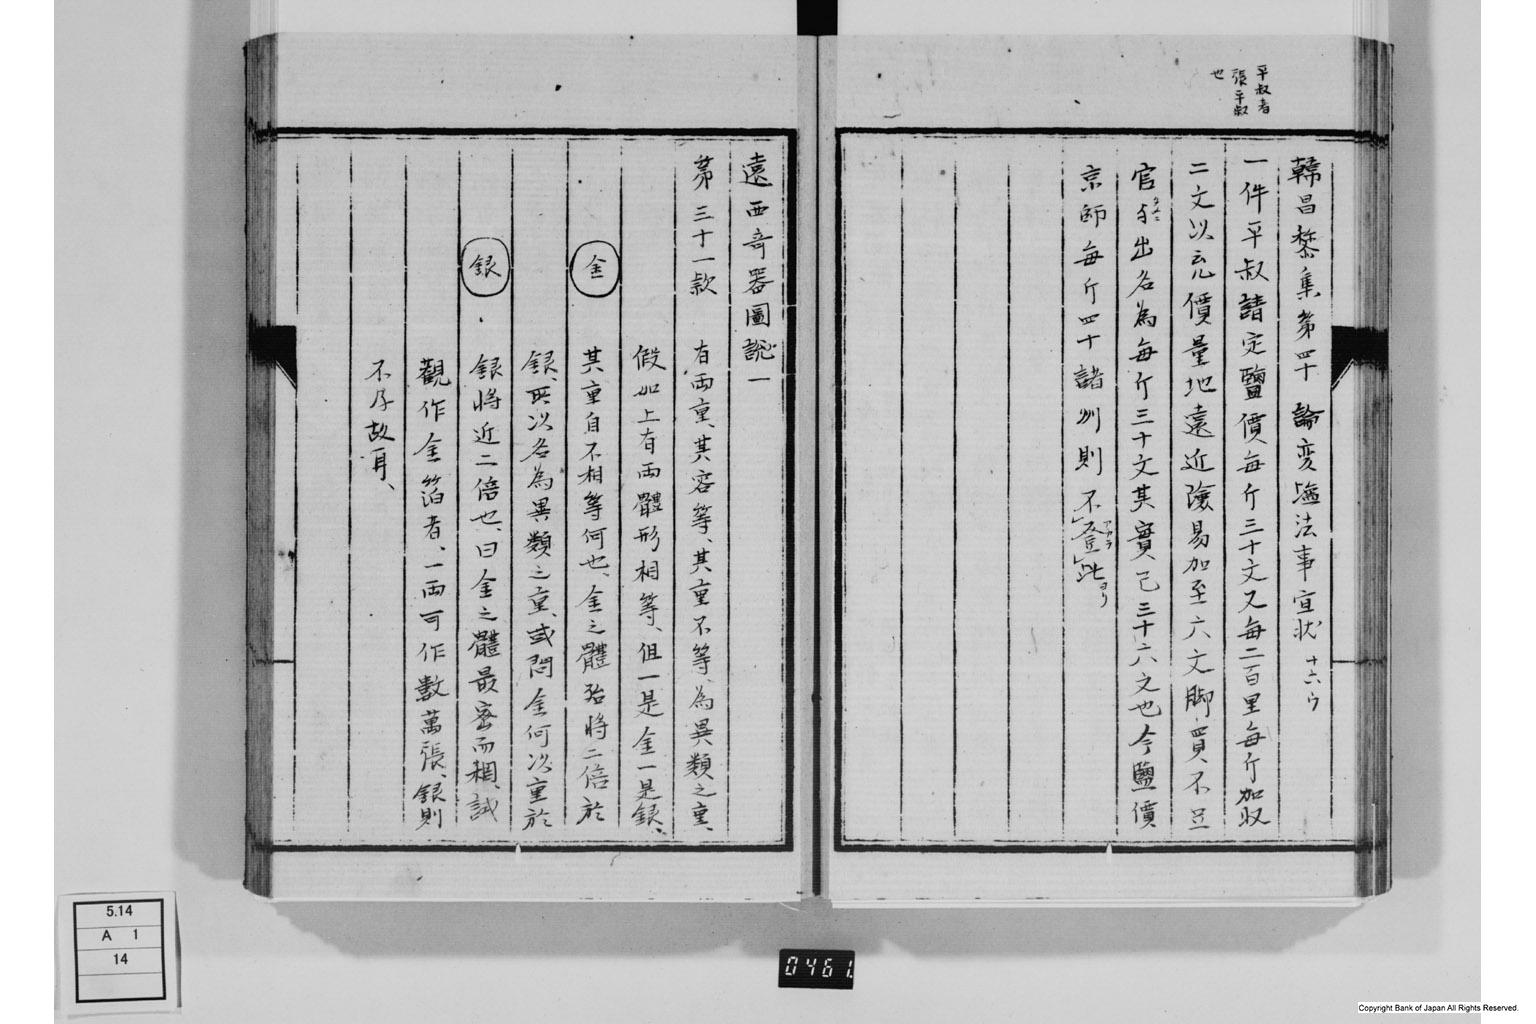 平叔者
張平叔
也
韓昌黎集第四十 論変塩法事宜状 十六ウ
一件平叔請定鹽價每斤三十文又每二百里每斤加収
二文以充價量地遠近險易加至六文脚價不足
官与出名為每斤三十文其實已三十六文也今鹽價
京師每斤四十諸州則不登此
遠西奇器圖説一
第三十一款 有両重、其容等、其重不等、為異類之重、
假如上有両體形相等、但一是金一是銀、
金 其重自不相等何也、金之體殆将二倍於
銀、所以名為異類之重、或問金何以重於
銀 銀将近二倍也、曰金之體最密而稠、試
觀作金箔者、一両可作數萬張、銀則
不及故耳、
5.14
A 1
14
0461.
Copyright Bank of Japan All Rights Reserved.